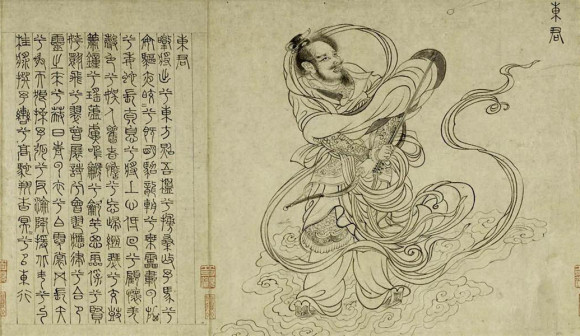 東君
東君
暾將出兮東方照吾檻兮扶桑撫余馬兮
安驅夜皎兮既明駕龍輈兮乘雷載雲旗
兮委蛇長太息兮將上心低佪兮顧懷羌
聲色兮娛人觀者憺兮忘歸緪瑟兮交鼓
簫鍾兮瑤簴鳴篪兮吹竽思靈保兮賢
姱翾飛兮翠曾展詩兮會舞應律兮合節
靈之來兮蔽日青雲衣兮白霓裳舉長矢
兮射天狼操余弧兮反淪降援北斗兮酌
桂漿撰余轡兮高駝翔杳冥兮以東行